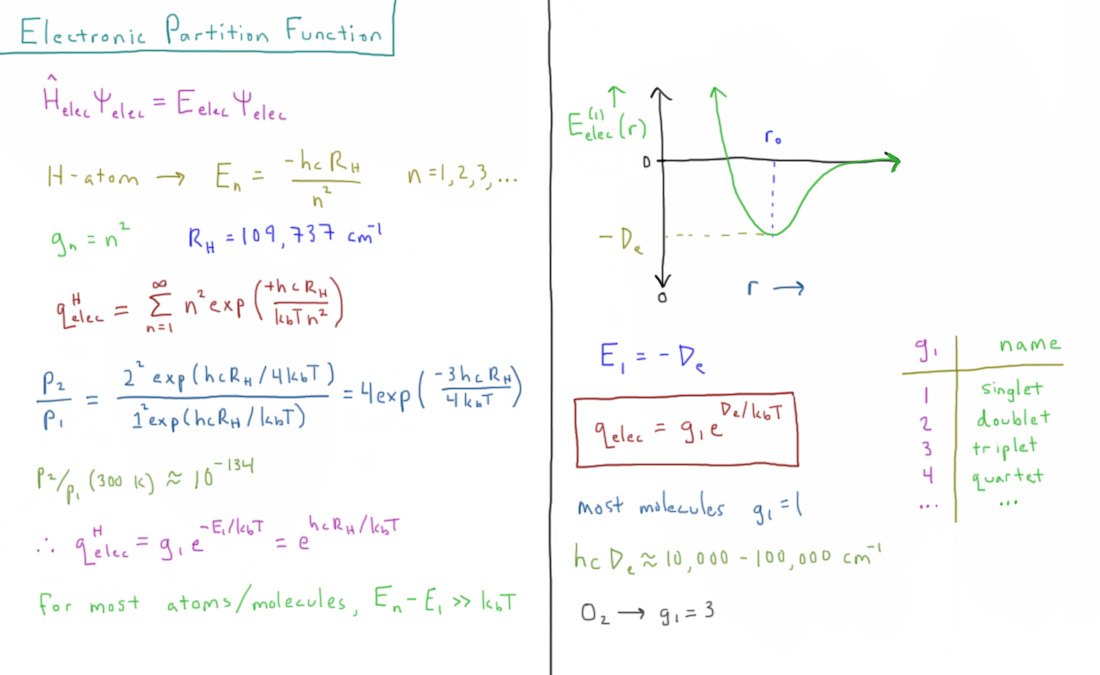 Electronic Partition Function
Ĥelec Ψelec = Eelec Ψelec
H-atom → En = -hcRH / n² n = 1, 2, 3, ...
gn = n² RH = 109,737 cm⁻¹
qᴴelec = ∑_{n=1}^{∞} n² exp(+hcRH / kbTn²)
P2/P1 = 2² exp(hcRH/4kbT) / 1² exp(hcRH/kbT) = 4exp(-3hcRH / 4kbT)
P2/P1 (300 K) ≈ 10⁻¹³⁴
∴ qᴴelec = g1 e^{-E1/kbT} = e^{hcRH/kbT}
for most atoms/molecules, En - E1 >> kbT
↑
E⁽¹⁾elec(r)
r₀
0
-De
0
r →
E1 = -De
qelec = g1 e^{De/kbT}
most molecules g1 = 1
hc De ≈ 10,000 - 100,000 cm⁻¹
O2 → g1 = 3
g1 name
1 singlet
2 doublet
3 triplet
4 quartet
... ...